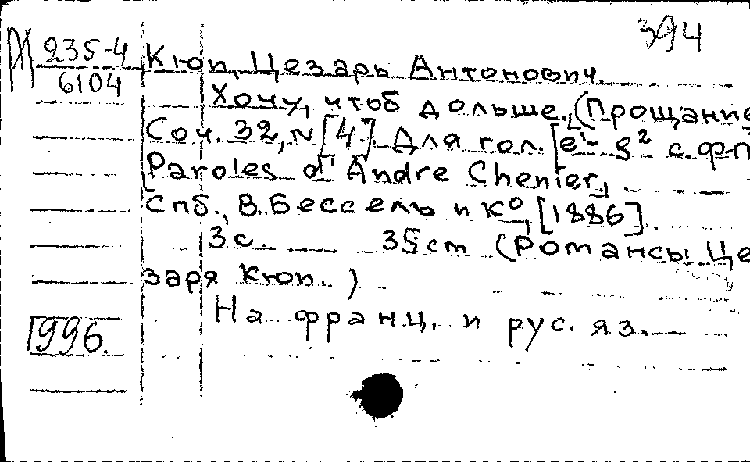 394
М 235-4
6104
Кюи, Цезарь Антонович.
Хочу, чтоб дольше. (Прощание
Соч. 32, № [4]. Для гол. [e¹- g² с ф-п
Paroles d'André Chenier,
Спб., В. Бессель и К⁰, [1886].
3 с. 35 cm (Романсы Це
заря Кюи.)
На франц. и рус. яз.
1996.